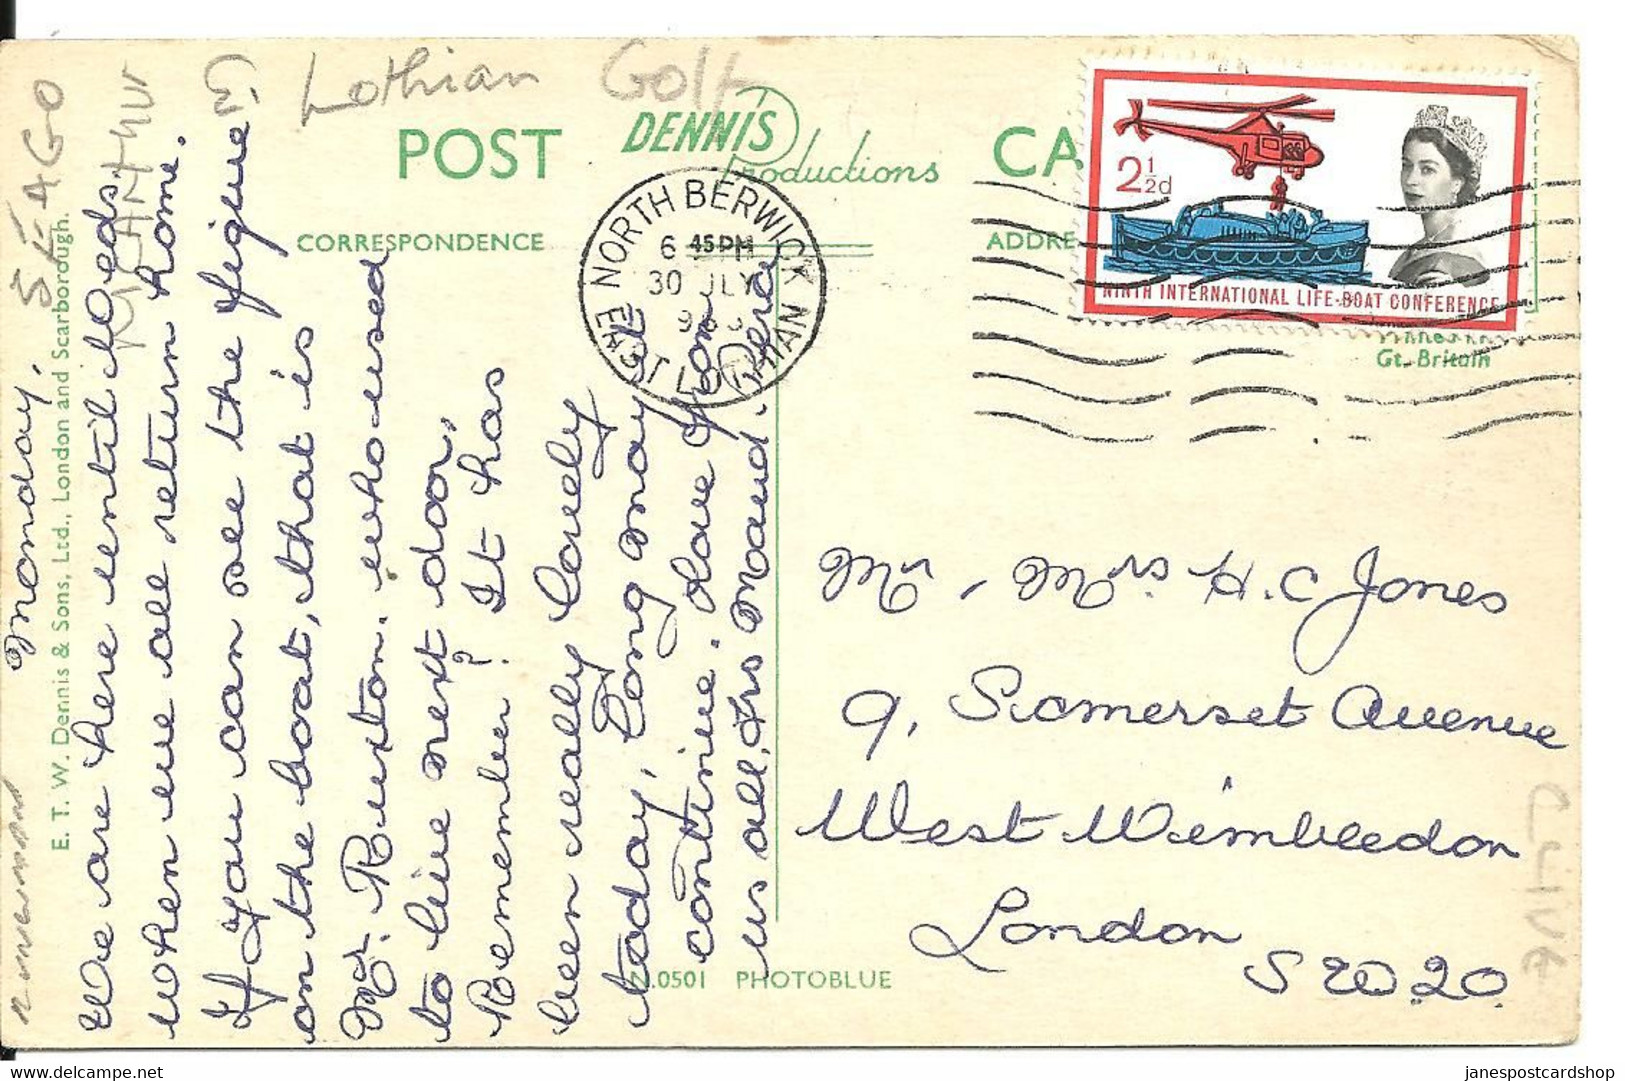 E. Lothian Golf
POST CA
DENNIS
Productions
CORRESPONDENCE
ADDRE
Gt. Britain
NORTH BERWICK
EAST LOTHIAN
6 45 PM
30 JLY
2½d
NINTH INTERNATIONAL LIFE-BOAT CONFERENCE
E. T. W. Dennis & Sons, Ltd., London and Scarborough.
Monday.
We are here until Weds.
when we all return home.
If you can see the figure
on the boat, that is
Mr. Ruxton. who used
to live next door,
Remember? It has
been really lovely
today, long may it
continue. Love from
us all, Maud.
Mr, Mrs H.C Jones
9, Somerset Avenue
West Wimbledon
London
SW20.
.0501 PHOTOBLUE
CLIVE
janespostcardshop